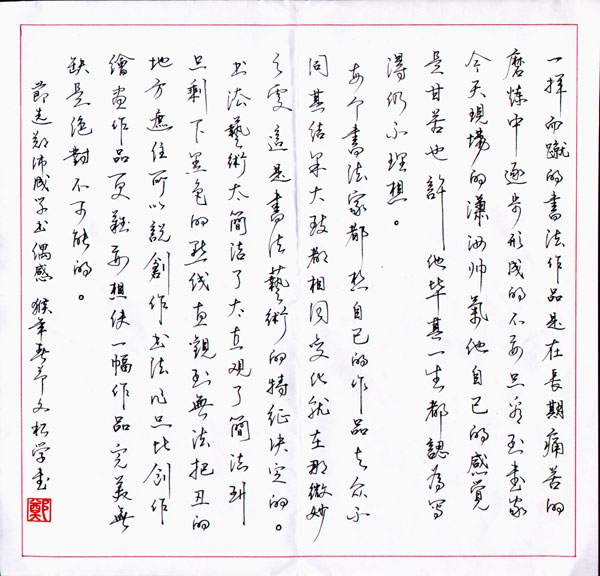 一挥而蹴的書法作品是在長期痛苦的
磨炼中逐步形成的不要只看到書家
今天現場的潇洒帅氣他自己的感覺
是甘苦也許他毕其一生都認為寫
得仍不理想。
每个書法家都想自己的作品与众不
同其结果大致都相同变化就在那微妙
之变這是書法藝術的特征决定的。
书法藝術太簡洁了太直观了簡洁到
只剩下黑色的线直觀到無法把丑的
地方遮住所以說創作书法作品比創作
繪畫作品更難要想使一幅作品完美無
缺是絕對不可能的。
節选郑沛成学书偶感 猴年春节文松学書
鄭